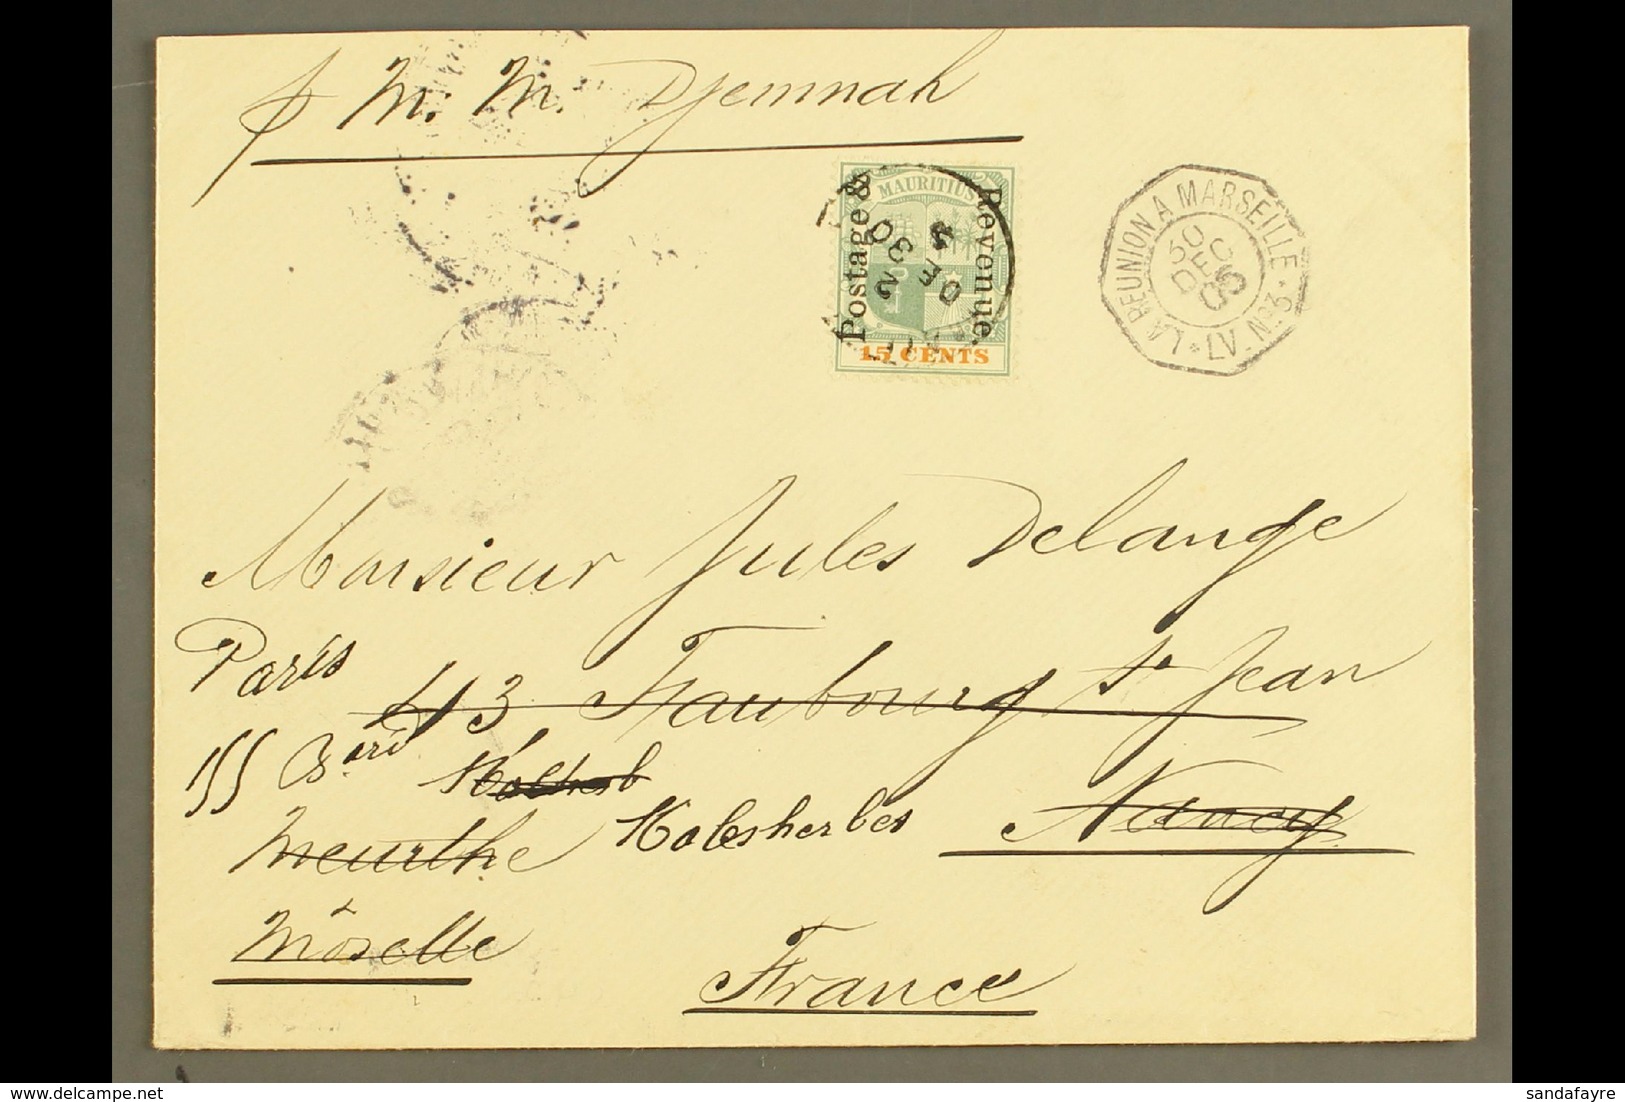 p M. M. Djemnah
MAURITIUS
Postage &
Revenue.
15 CENTS
LA REUNION A MARSEILLE
30
DEC
05
LV. No 3
Monsieur Jules Delange
Paris
43 Faubourg St Jean
155 Bard
Malesherbes
Nancy
Meurthe
Moselle
France
sandafayre